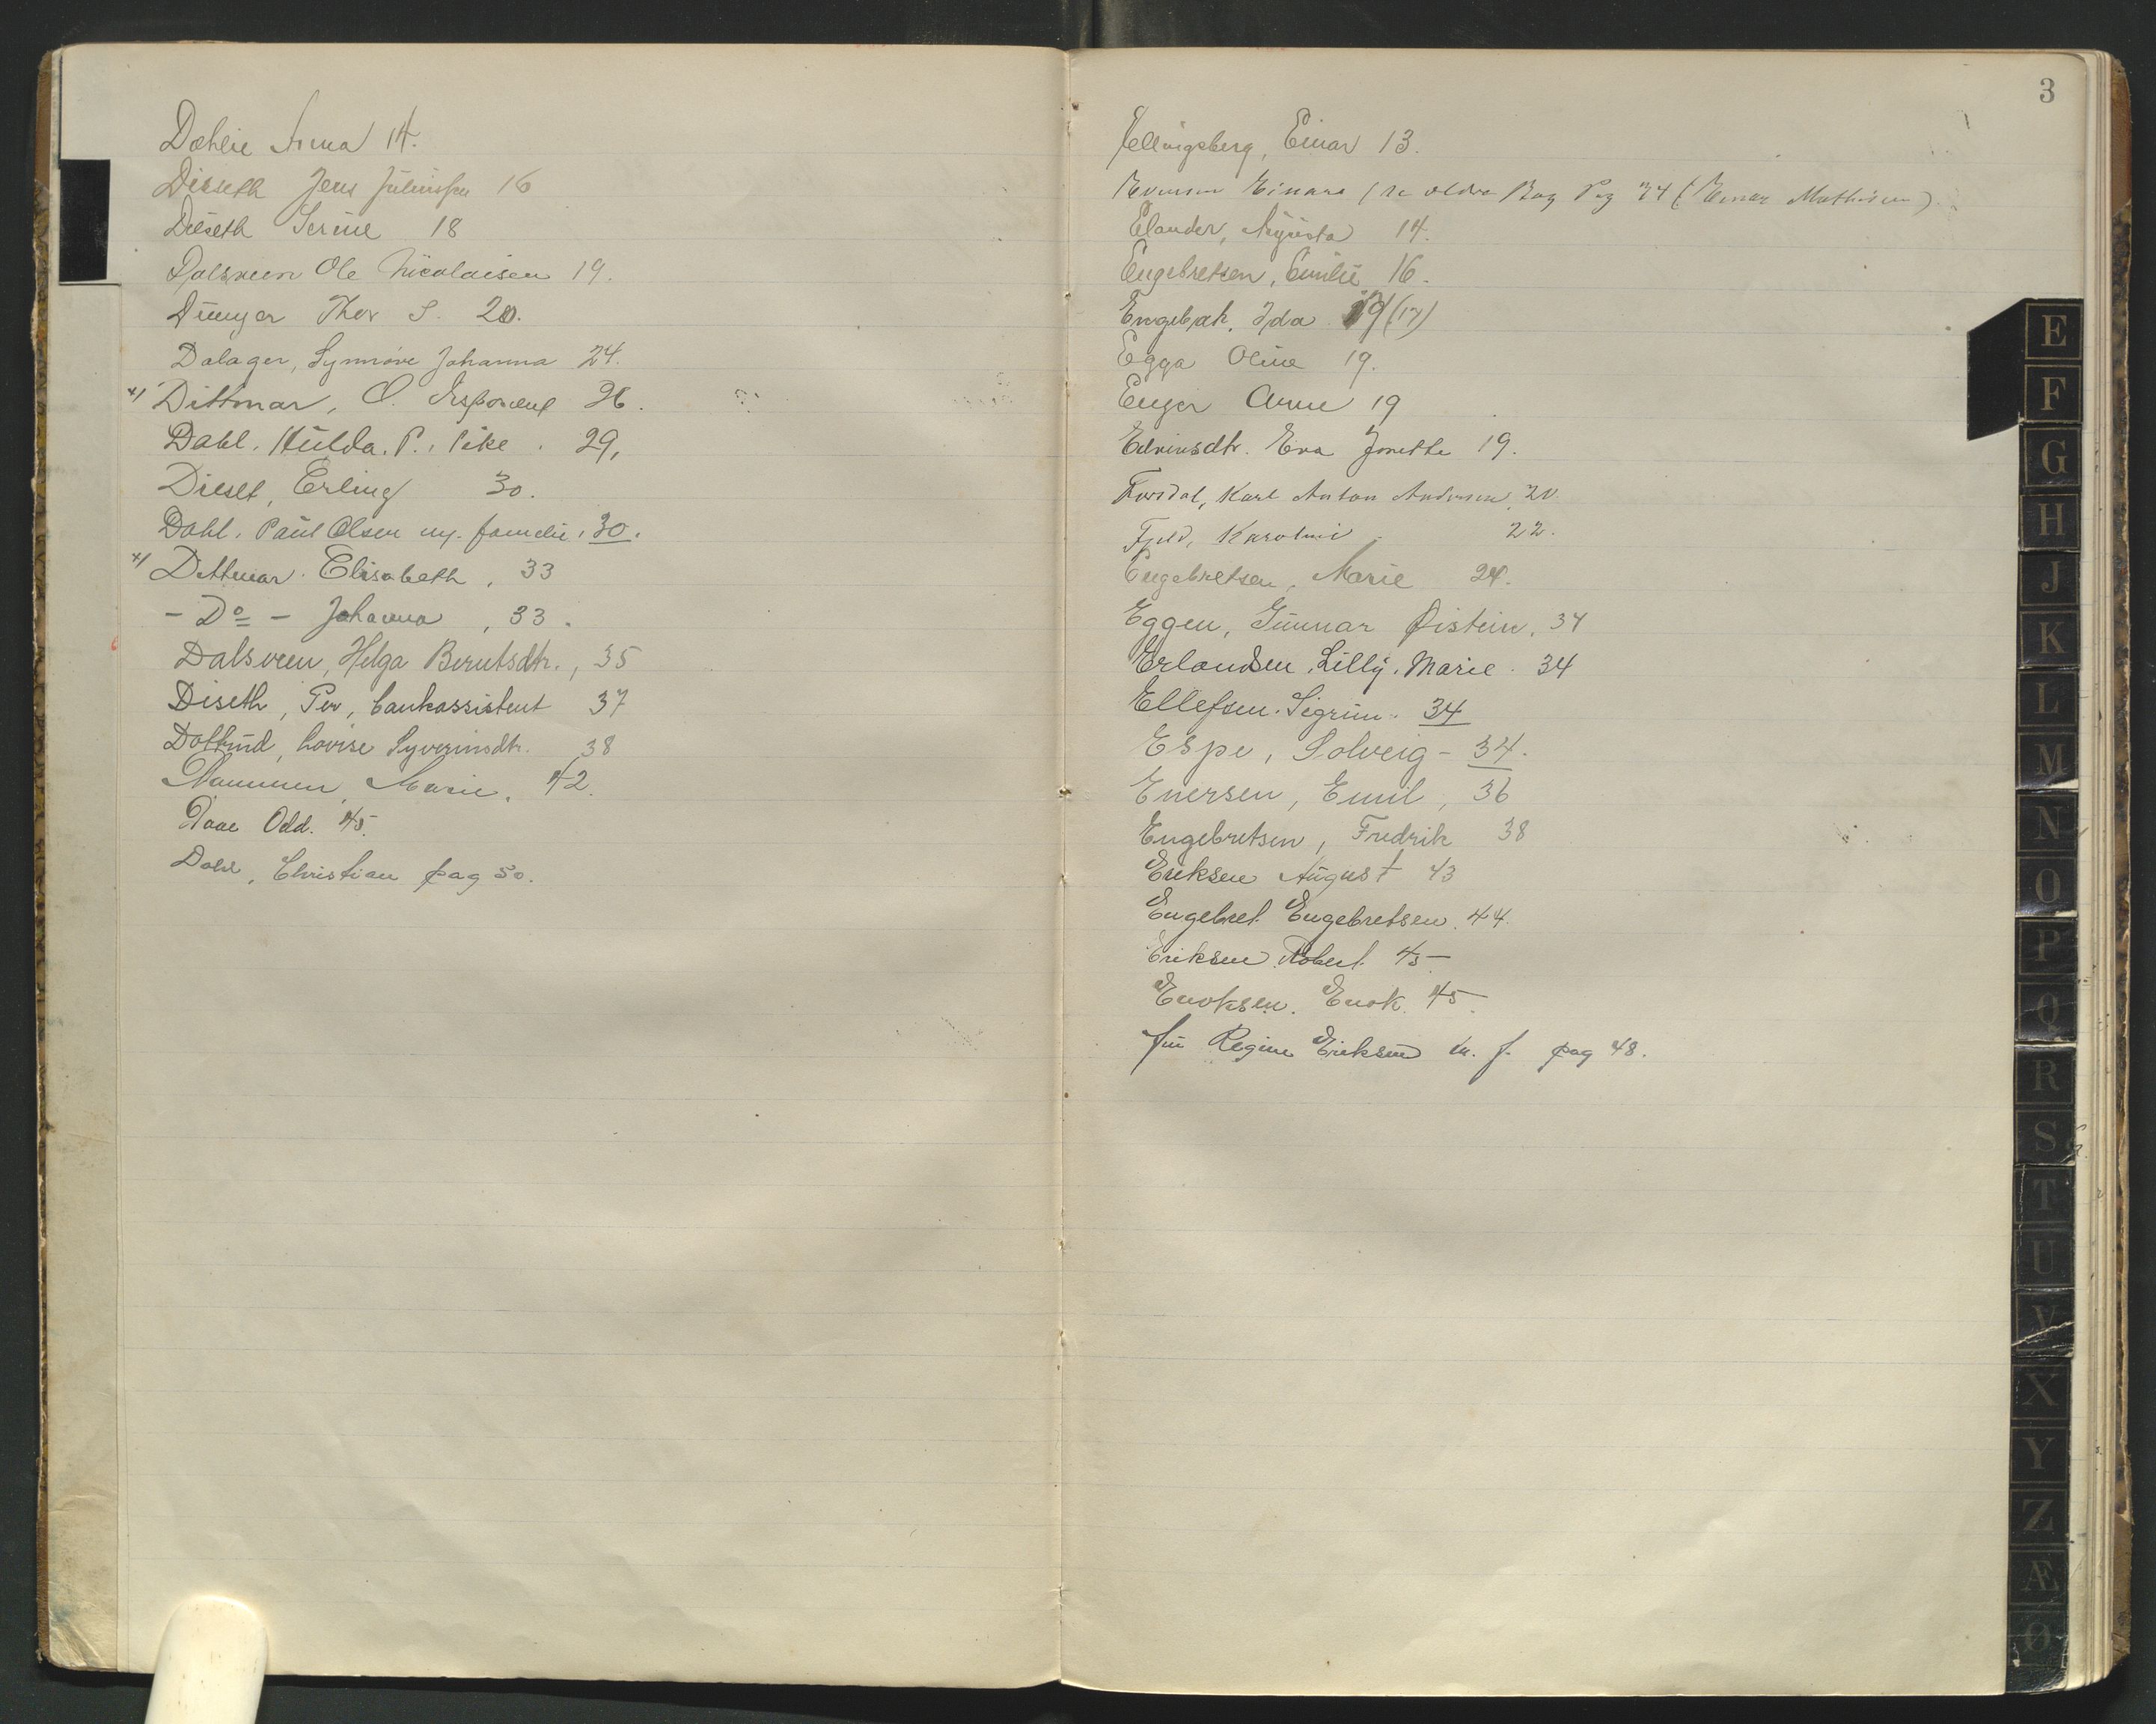 Dæhlie Anna 14.
Diseth Jens Juliussen 16
Diseth Serine 18
Dalsveen Ole Nicolaisen 19.
Thor S. 20.
Dalager, Synnøve Johanna 24.
x) Dittmar, O. 26.
Dahl. Hulda. P., Pike. 29,
Diset, Erling 30.
Dahl. Paul Olsen m. familie, 30.
x) Dittmar. Elisabeth, 33
- Do - Johanna, 33.
Dalsveen, Helga Berntsdtr., 35
Diseth, Per, bankassistent 37
Lovise Syverinsdtr. 38
Marie. 42.
Daae Odd. 45.
Dahl, Christian pag 50.
3
Ellingsberg, Einar 13.
Einara (se ældre Pag 34 (Einar Mathisen).
Elander, Augusta 14.
Engebretsen, Emilie 16.
Engebak, Ida 19 (17)
Egga Oline 19.
Enger Arne 19
Edvinsdtr. Eva Jonette 19.
Forsdal, Karl Anton Andersen, 20.
Fjeld, Karoline 22.
Engebretsen, Marie 24.
Eggen, Gunnar Øistein, 34
Erlandsen, Lilly. Marie. 34
Ellefsen. Sigrun. 34
Espe, Solveig - 34.
Enersen, Emil, 36
Engebretsen, Fredrik 38
Eriksen August 43
Engebret Engebretsen. 44.
Eriksen. Robert. 45
Enoksen. Enok. 45
Regine Eriksen m. f. pag 48.
E
F
G
H
J
K
L
M
N
O
P
Q
R
S
T
U
V
X
Y
Z
Æ
Ø